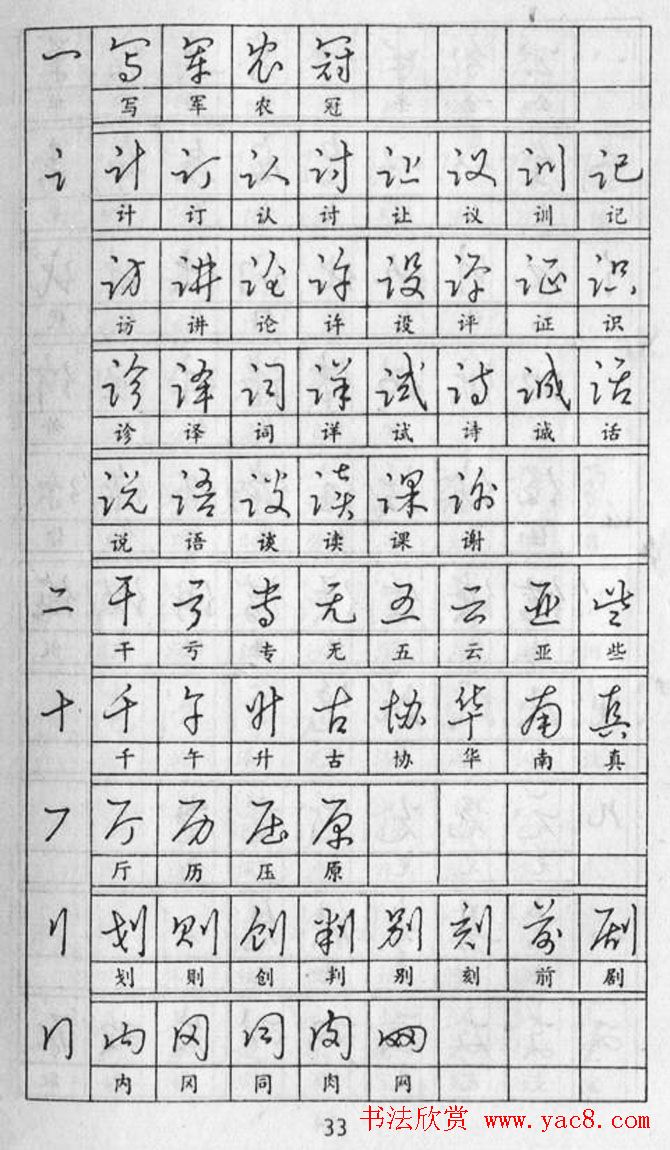 冖 写 军 农 冠
写 军 农 冠
讠 计 订 认 讨 让 议 训 记
计 订 认 讨 让 议 训 记
访 讲 论 许 设 评 证 识
访 讲 论 许 设 评 证 识
诊 译 词 详 试 诗 诚 话
诊 译 词 详 试 诗 诚 话
说 语 谈 读 课 谢
说 语 谈 读 课 谢
二 干 亏 专 无 五 云 亚 些
干 亏 专 无 五 云 亚 些
十 千 午 升 古 协 华 南 真
千 午 升 古 协 华 南 真
厂 厅 历 压 原
厅 历 压 原
刂 划 则 创 判 别 刻 前 剧
划 则 创 判 别 刻 前 剧
冂 内 冈 同 肉 网
内 冈 同 肉 网
33 书法欣赏 www.yac8.com